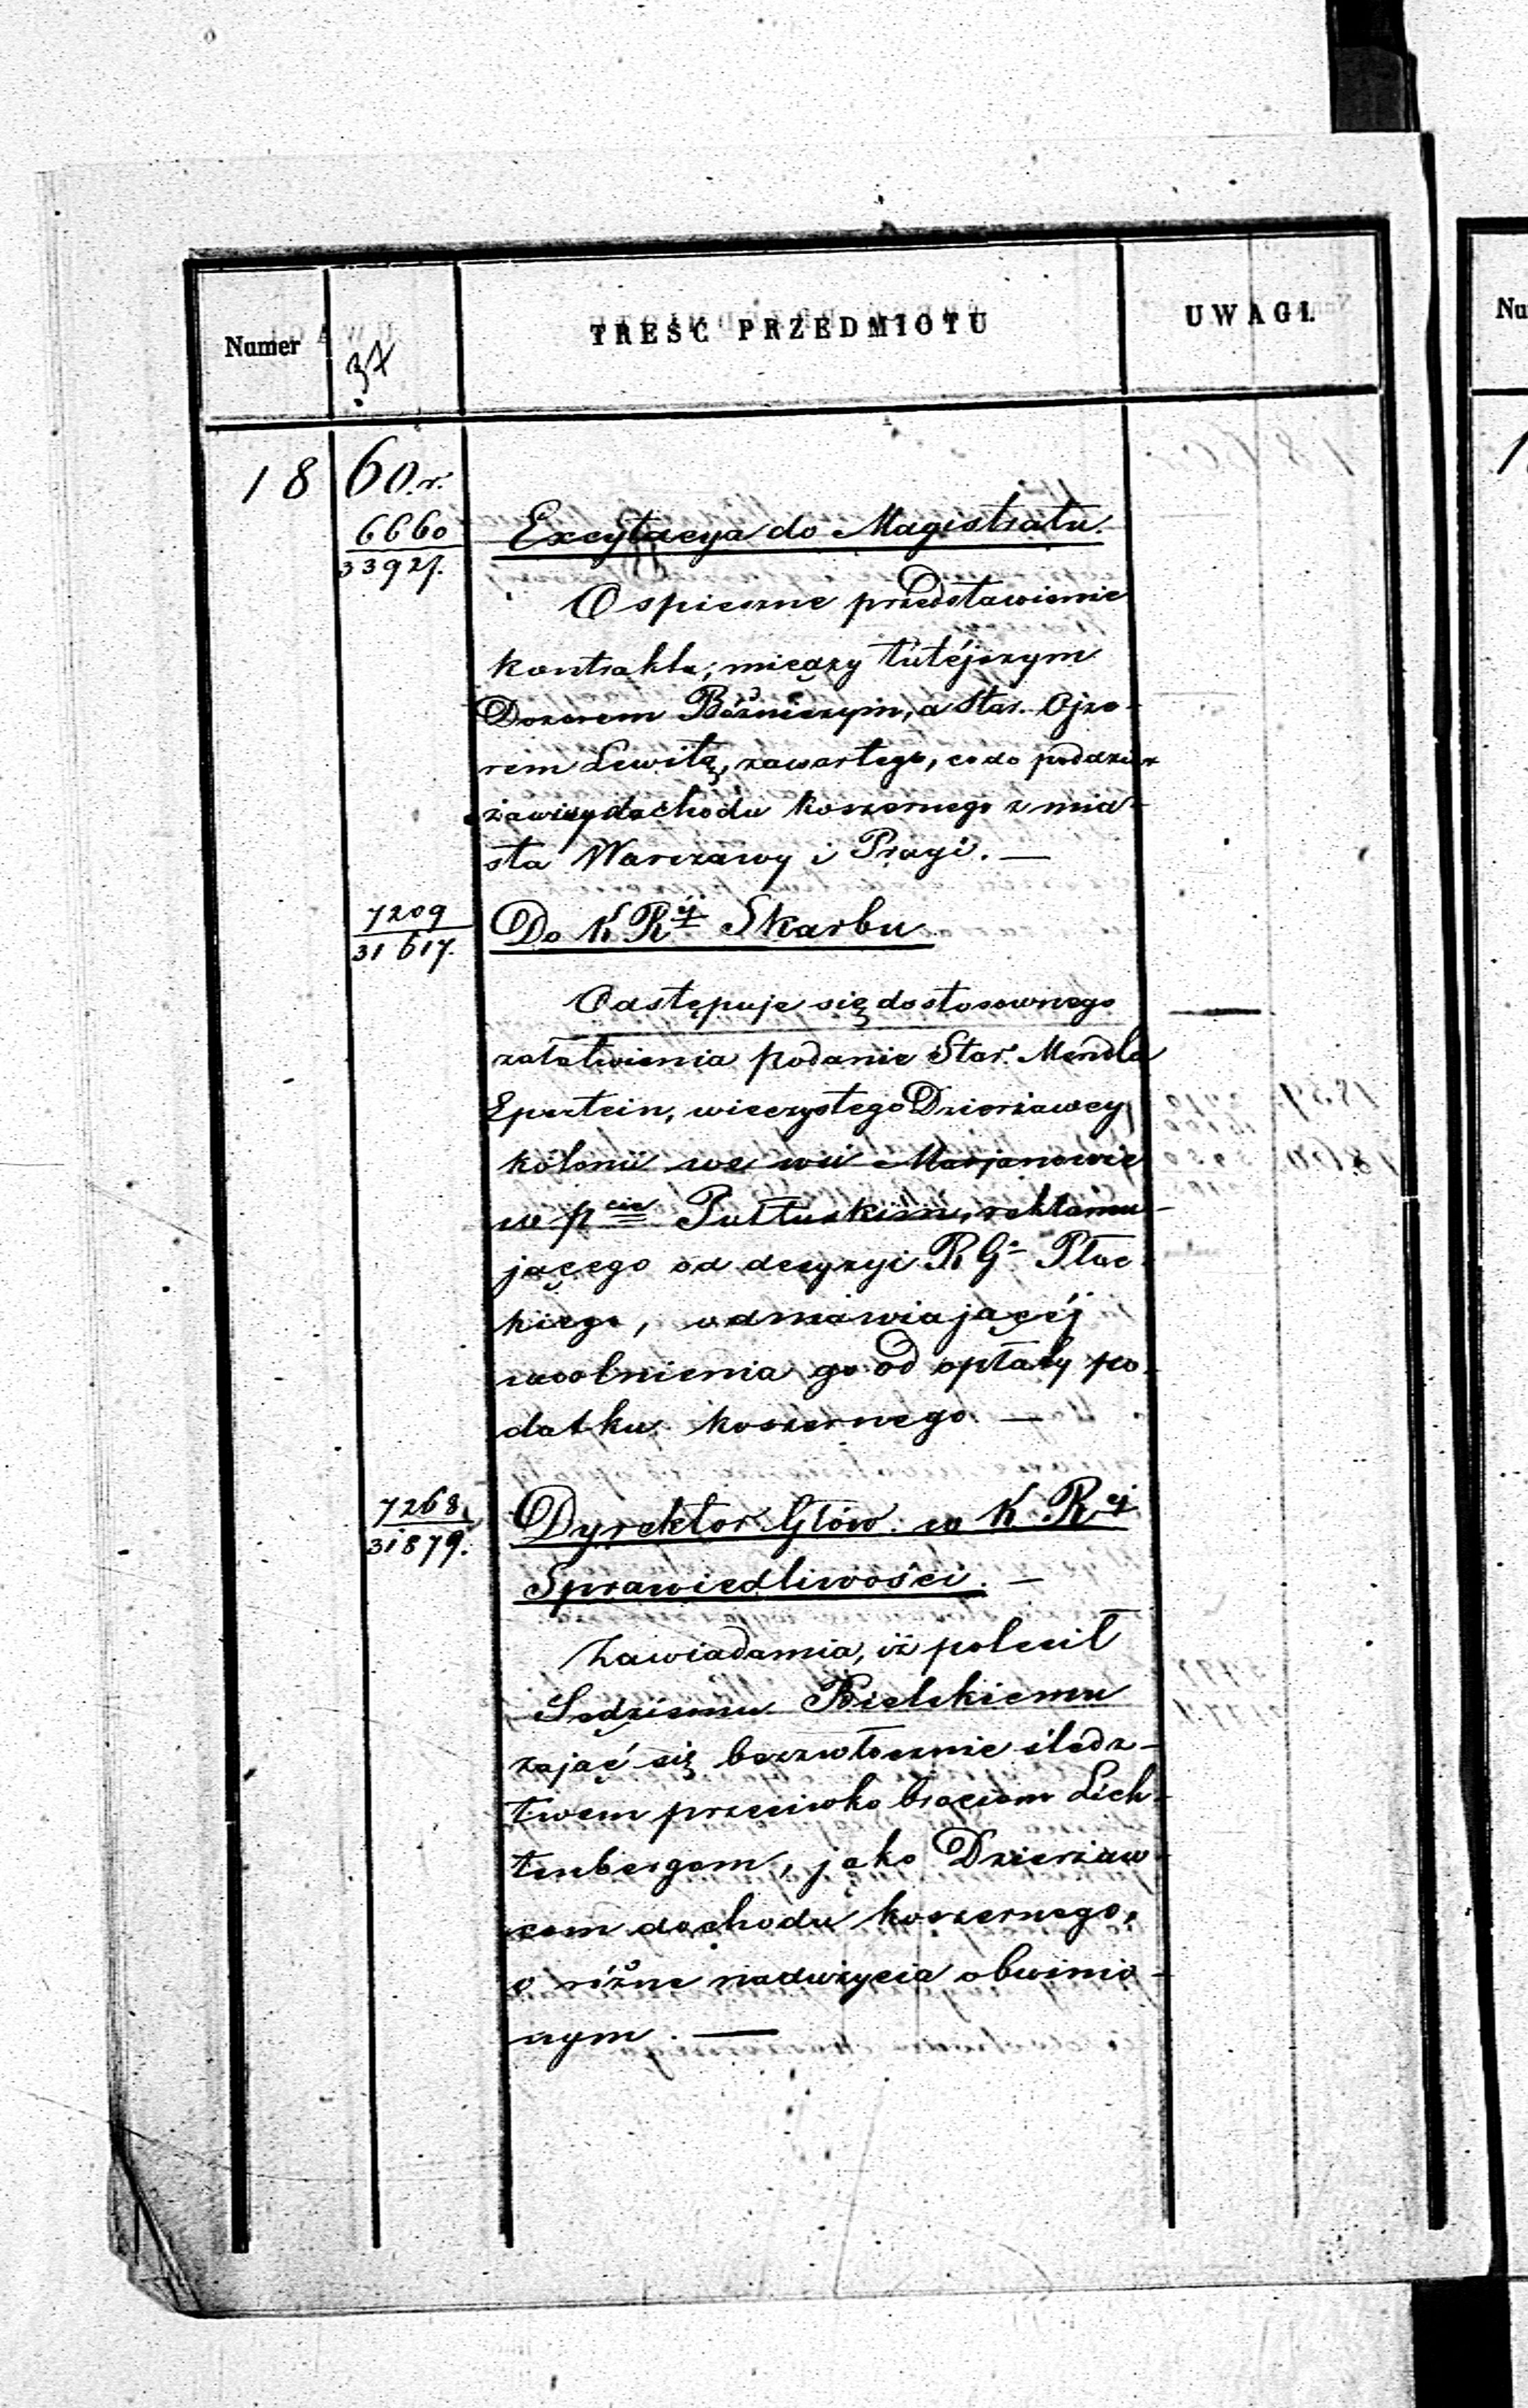 Numer 37 TREŚĆ PRZEDMIOTU UWAGI.
1860.r.
6660 Excytacya do Magistratu.
33927.
O spieszne przedstawienie
kontraktu, między tutéjszym
Dozorem Bóżniczym, a Star. Ajze-
rem Lewitą, zawartego, co do poddzier
żawy dochodu koszernego z mia-
sta Warszawy i Pragi. —
7209 Do K Rej Skarbu
31617.
Odstępuje się do stosownego
załatwienia podanie Star. Mendla
Epsztein, wieczystego Dzierżawcy
kolonii we wsi Marjanowie
w pcie Pułtuskim, reklamu-
jącego od decyzyi R G Płoc-
kiego, odmawiającéj
uwolnienia go od opłaty po-
datku koszernego. —
7268 Dyrektor Głów. w K. Rej
31879. Sprawiedliwości. —
Zawiadamia, iż polecił
Sędziemu Bielskiemu
zająć się bezzwłocznie śledz-
twem przeciwko braciom Lich-
tenbergom, jako Dzierżaw-
com dochodu koszernego,
o różne nadużycia obwinio-
nym. —